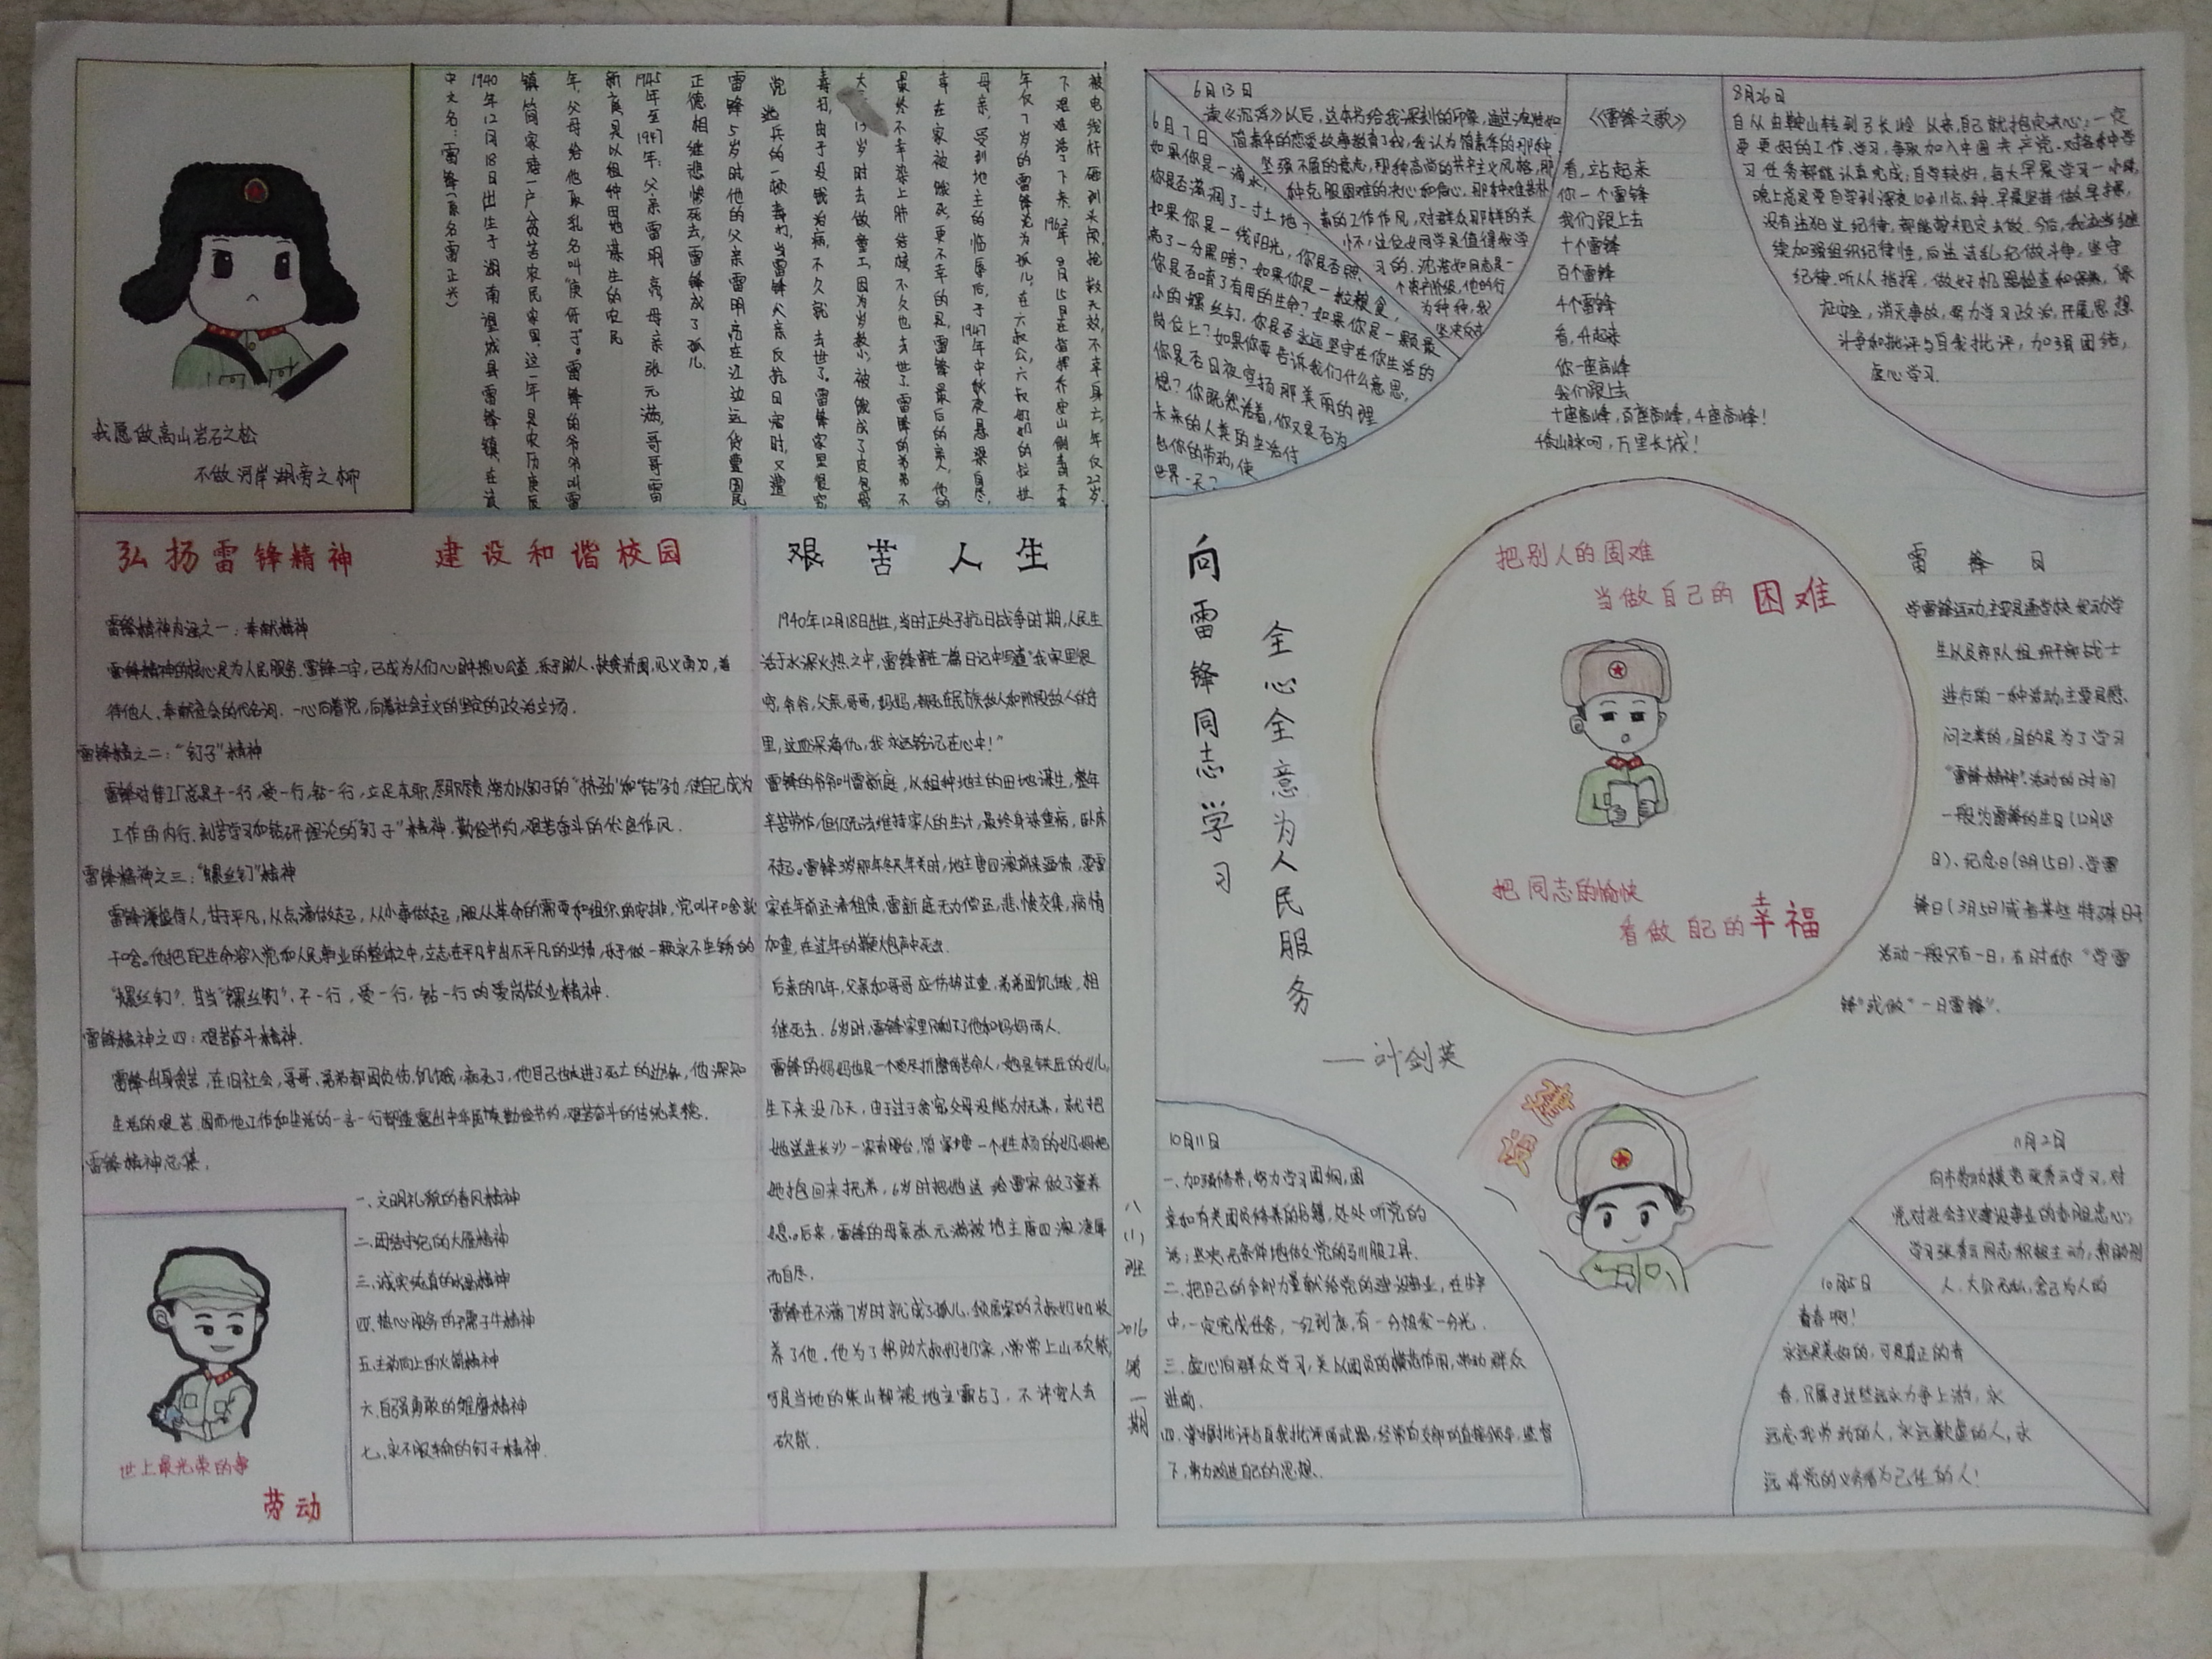 我愿做高山岩石之松
不做河岸湖旁之柳
中文名：雷锋（原名雷正兴）
1940年12月18日出生于湖南望城县雷锋镇，在该
镇简家塘一户贫苦农民家里。这一年是农历庚辰
年，父母给他取乳名叫“庚伢子”。雷锋的爷爷叫雷
新庭是以租种田地谋生的农民
1945年至1947年：父亲雷明亮、母亲张元满、哥哥雷
正德相继悲惨死去，雷锋成了孤儿。
雷锋5岁时他的父亲雷明亮在江边运货遭国民
党逃兵的一顿毒打，当雷锋父亲反抗日寇时，又遭
毒打，由于没钱治病，不久就去世了。雷锋家里很穷
岁时去做童工，因为岁数小，被饿成了皮包骨
最终不幸染上肺结核，不久也去世了雷锋的弟弟不
幸在家被饿死，更不幸的是，雷锋最后的亲人，他的
母亲，受到地主的临辱后，于1947年中秋夜悬梁自尽，
年仅7岁的雷锋沦为孤儿，在六叔公、六叔奶奶的拉扯
下艰难活了下来。1962年8月15日在指挥乔安山倒车不幸
被电线杆砸到头颅，抢救无效，不幸身亡，年仅22岁。
弘扬雷锋精神 建设和谐校园
雷锋精神内涵之一：奉献精神
雷锋精神的核心是为人民服务。雷锋二字，已成为人们心目中热心公益、乐于助人、扶贫济困、见义勇为、善
待他人、奉献社会的代名词。一心向着党，向着社会主义的坚定的政治立场。
雷锋精之二：“钉子”精神
雷锋对待工厂总是干一行，爱一行，钻一行，立足本职，尽职尽责，努力以钉子的“挤劲”和“钻”劲，使自己成为
工作的内行。刻苦学习和钻研理论的“钉子”精神。勤俭节约，艰苦奋斗的优良作风。
雷锋精神之三：“螺丝钉”精神
雷锋谦虚待人，甘于平凡，从点滴做起，从小事做起，服从革命的需要和组织的安排，党叫干啥就
干啥。他把自己生命溶入党和人民事业的整体之中，立志在平凡中出不平凡的业绩，乐于做一颗永不生锈的
“螺丝钉”。甘当“螺丝钉”，干一行，爱一行，钻一行的爱岗敬业精神。
雷锋精神之四：艰苦奋斗精神。
雷锋出身贫苦，在旧社会，哥哥、弟弟都因负伤、饥饿，病死了，他自己也走进了死亡的边缘，他深知
生活的艰苦，因而他工作和生活的一言一行都透露出中华民族勤俭节约，艰苦奋斗的传统美德。
雷锋精神总集，
一、文明礼貌的春风精神
二、团结守纪的大雁精神
三、诚实纯真的水晶精神
四、热心服务的孺子牛精神
五、主动向上的火箭精神
六、自强勇敢的雏鹰精神
七、永不服输的钉子精神
世上最光荣的事
劳动
艰苦人生
1940年12月18日出生，当时正处于抗日战争时期，人民生
活于水深火热之中，雷锋曾在一篇日记中写道“我家里很
穷，爷爷，父亲，哥哥，妈妈，都死在民族敌人和阶段敌人的手
里，这血深海仇，我永远铭记在心中！”
雷锋的爷爷叫雷新庭，从租种地主的田地谋生，整年
辛苦劳作，但仍无法维持家人的生计，最终身染重病，卧床
不起。雷锋3岁那年冬天年关时，地主唐四滚前来逼债，要雷
家在年前还清租债，雷新庭无力偿还，悲愤交集，病情
加重，在过年的鞭炮声中死去。
后来的几年，父亲和哥哥应伤势过重，弟弟因饥饿，相
继死去。6岁时，雷锋家里只剩下了他和妈妈两人。
雷锋的妈妈也是一个受尽折磨的苦命人，她是铁匠的女儿，
生下来没几天，由于过于贫穷父母没能力抚养，就把
她送进长沙一家育婴台，简家塘一个姓杨的奶妈把
她抱回来抚养，6岁时把她送给雷家做了童养
媳。后来，雷锋的母亲张元满被地主唐四滚凌辱
而自尽。
雷锋在不满7岁时就成了孤儿，领居家的六叔奶奶收
养了他。他为了帮助六叔奶奶家，常常上山砍柴，
可是当地的柴山都被地主霸占了，不许穷人去
砍柴。
八(1)班 2016 第一期
6月13日
读《沉浮》以后，这本书给我深刻的印象，通过沈浩如
简素华的恋爱故事教育了我，我认为简素华的那种
坚强不屈的意志，那种高尚的共产主义风格，那
种克服困难的决心和信心，那种艰苦朴
素的工作作风，对群众那样的关
怀，这位女同学是值得我学
习的。沈浩如同志是一
个资产阶级，他的行
为种种，我
坚决反对
6月7日
如果你是一滴水，
你是否滋润了一寸土地？
如果你是一线阳光，你是否照
亮了一分黑暗？如果你是一粒粮食，
你是否哺了有用的生命？如果你是一颗最
小的螺丝钉，你是否永远坚守在你生活的
岗位上？如果你要告诉我们什么意思，
你是否日夜宣扬那美丽的理
想？你既然活着，你又是否为
未来的人类的生活付
出你的劳动，使
世界一天？
《雷锋之歌》
看，站起来
你一个雷锋
我们跟上去
十个雷锋
百个雷锋
千个雷锋
看，升起来
你一座高峰
我们跟上去
十座高峰，百座高峰，千座高峰！
条山脉呵，万里长城！
8月26日
自从由鞍山转到弓长岭以来，自己就抱定决心：一定
要更好的工作、学习，争取加入中国共产党。对各种学
习任务都能认真完成；自学较好，每天早晨学习一小时，
晚上总是要自学到深夜10到11点钟。早晨坚持做早操，
没有违犯过纪律，都能按规定去做。今后，我应当继
续加强组织纪律性，向违法乱纪做斗争，坚守
纪律，听从指挥，做好机器检查和保养，保
证安全，消灭事故，努力学习政治，开展思想
斗争和批评与自我批评，加强团结，
虚心学习。
向雷锋同志学习
全心全意为人民服务
——叶剑英
把别人的困难
当做自己的困难
把同志的愉快
看做自己的幸福
雷锋日
学雷锋运动，主要是通学校发动学
生以及部队组织干部战士
进行的一种活动，主要是慰
问之类的，目的是为了学习
“雷锋精神”。活动的时间
一般为雷锋的生日（12月18
日）、纪念日（8月15日）、学雷
锋日（3月5日）或者某些特殊日子
活动一般只有一日，有时称“学雷
锋”或做“一日雷锋”。
10月11日
一、加强修养，努力学习团纲，团
章和有关团员修养的书籍，处处听党的
话，坚决、无条件地做党的驯服工具。
二、把自己的全部力量献给党的建设事业，在生产
中，一定完成任务，一红到底，有一分热发一分光。
三、虚心向群众学习，关以团员的模范作用，带动群众
进前。
四、掌握批评与自我批评的武器，经常向支部的直接领导，监督
下，努力改进自己的思想。
11月2日
向市劳动模范张秀云学习，对
党对社会主义建设事业的赤胆忠心；
学习张秀云同志积极主动，帮助别
人，大公无私，舍己为人的
10月25日
青春啊！
永远是美好的，可是真正的青
春，只属于这些永远力争上游，永
远忘我劳动的人，永远歉虚的人，永